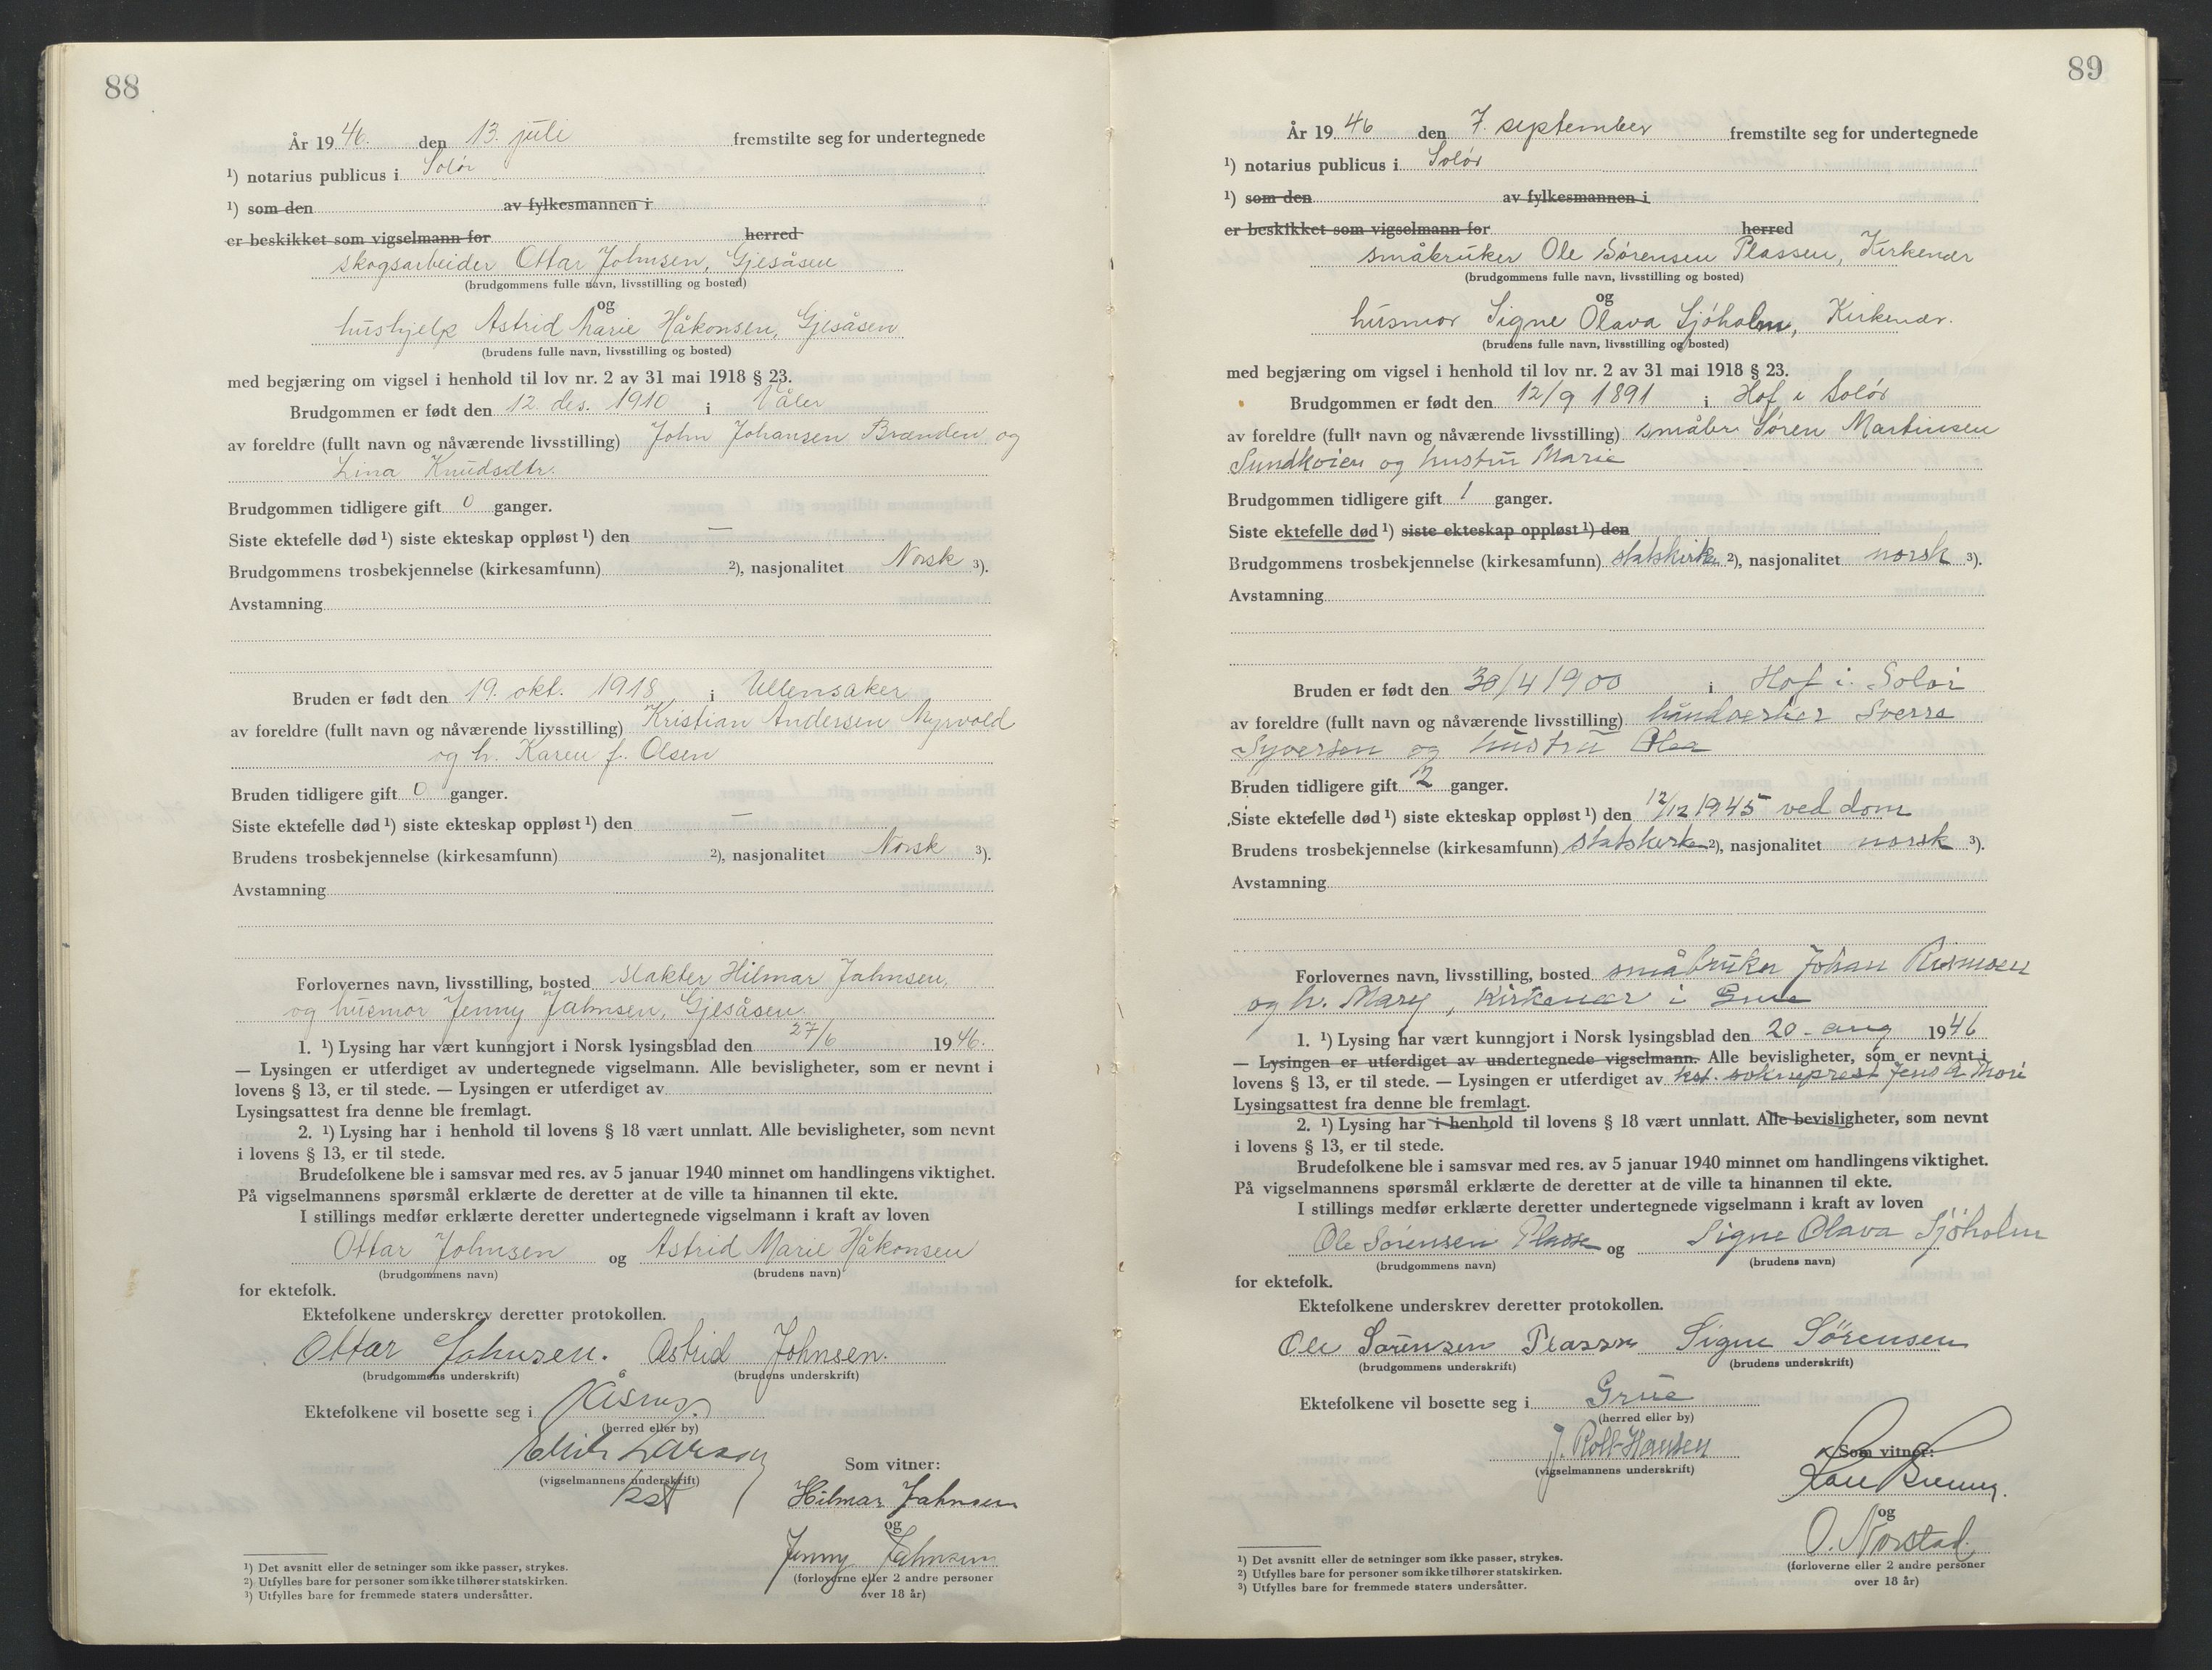 88
År 1946. den 13. juli fremstilte seg for undertegnede
¹) notarius publicus i Solør
¹) som den av fylkesmannen i
er beskikket som vigselmann for herred
skogsarbeider Ottar Johnsen, Gjesåsen
(brudgommens fulle navn, livsstilling og bosted)
og
hushjelp Astrid Marie Håkonsen, Gjesåsen
(brudens fulle navn, livsstilling og bosted)
med begjæring om vigsel i henhold til lov nr. 2 av 31 mai 1918 § 23.
Brudgommen er født den 12. des. 1910 i Våler
av foreldre (fullt navn og nåværende livsstilling) John Johansen Brænden og
Lina Knudsdtr.
Brudgommen tidligere gift 0 ganger.
Siste ektefelle død ¹) siste ekteskap oppløst ¹) den —
Brudgommens trosbekjennelse (kirkesamfunn) ²), nasjonalitet Norsk ³).
Avstamning
Bruden er født den 19. okt. 1918 i Ullensaker
av foreldre (fullt navn og nåværende livsstilling) Kristian Andersen Myrvold
og h. Karen f. Olsen
Bruden tidligere gift 0 ganger.
Siste ektefelle død ¹) siste ekteskap oppløst ¹) den —
Brudens trosbekjennelse (kirkesamfunn) ²), nasjonalitet Norsk ³).
Avstamning
Forlovernes navn, livsstilling, bosted slakter Hilmar Jahnsen,
og husmor Jenny Jahnsen, Gjesåsen.
1. ¹) Lysing har vært kunngjort i Norsk lysingsblad den 27/6 1946.
— Lysingen er utferdiget av undertegnede vigselmann. Alle bevisligheter, som er nevnt i
lovens § 13, er til stede. — Lysingen er utferdiget av
Lysingsattest fra denne ble fremlagt.
2. ¹) Lysing har i henhold til lovens § 18 vært unnlatt. Alle bevisligheter, som nevnt
i lovens § 13, er til stede.
Brudefolkene ble i samsvar med res. av 5 januar 1940 minnet om handlingens viktighet.
På vigselmannens spørsmål erklærte de deretter at de ville ta hinannen til ekte.
I stillings medfør erklærte deretter undertegnede vigselmann i kraft av loven
Ottar Johnsen og Astrid Marie Håkonsen
(brudgommens navn) (brudens navn)
for ektefolk.
Ektefolkene underskrev deretter protokollen.
Ottar Johnsen. Astrid Johnsen.
(brudgommens underskrift) (brudens underskrift)
Ektefolkene vil bosette seg i Åsnes.
(herred eller by)
Larsen
(vigselmannens underskrift)
kst
Som vitner:
Hilmar Jahnsen
og
Jenny Jahnsen
(forloverne eller 2 andre personer
over 18 år)
¹) Det avsnitt eller de setninger som ikke passer, strykes.
²) Utfylles bare for personer som ikke tilhører statskirken.
³) Utfylles bare for fremmede staters undersåtter.
89
År 1946 den 7. september fremstilte seg for undertegnede
¹) notarius publicus i Solør
¹) som den av fylkesmannen i
er beskikket som vigselmann for herred
småbruker Ole Sørensen Plassen, Kirkenær
(brudgommens fulle navn, livsstilling og bosted)
og
husmor Signe Olava Sjöholm, Kirkenær.
(brudens fulle navn, livsstilling og bosted)
med begjæring om vigsel i henhold til lov nr. 2 av 31 mai 1918 § 23.
Brudgommen er født den 12/9 1891 i Hof i Solør
av foreldre (fullt navn og nåværende livsstilling) småbr. Søren Martinsen
Sundkoien og hustru Marie
Brudgommen tidligere gift 1 ganger.
Siste ektefelle død ¹) siste ekteskap oppløst ¹) den
Brudgommens trosbekjennelse (kirkesamfunn) statskirken ²), nasjonalitet norsk ³).
Avstamning
Bruden er født den 30/4 1900 i Hof i Solør
av foreldre (fullt navn og nåværende livsstilling) håndverker Sverre
Syversen og hustru Olea
Bruden tidligere gift 2 ganger.
Siste ektefelle død ¹) siste ekteskap oppløst ¹) den 12/12 1945 ved dom
Brudens trosbekjennelse (kirkesamfunn) statskirken ²), nasjonalitet norsk ³).
Avstamning
Forlovernes navn, livsstilling, bosted småbruker Johan Rismoen
og h. Mary, Kirkenær i Grue
1. ¹) Lysing har vært kunngjort i Norsk lysingsblad den 20. aug 1946
— Lysingen er utferdiget av undertegnede vigselmann. Alle bevisligheter, som er nevnt i
lovens § 13, er til stede. — Lysingen er utferdiget av kst. sokneprest Jens A. Mori
Lysingsattest fra denne ble fremlagt.
2. ¹) Lysing har i henhold til lovens § 18 vært unnlatt. Alle bevisligheter, som nevnt
i lovens § 13, er til stede.
Brudefolkene ble i samsvar med res. av 5 januar 1940 minnet om handlingens viktighet.
På vigselmannens spørsmål erklærte de deretter at de ville ta hinannen til ekte.
I stillings medfør erklærte deretter undertegnede vigselmann i kraft av loven
Ole Sørensen Plassen og Signe Olava Sjöholm
(brudgommens navn) (brudens navn)
for ektefolk.
Ektefolkene underskrev deretter protokollen.
Ole Sørensen Plassen Signe Sørensen
(brudgommens underskrift) (brudens underskrift)
Ektefolkene vil bosette seg i Grue
(herred eller by)
J. Roll-Hansen
(vigselmannens underskrift)
Som vitner:
og
O. Norstad.
(forloverne eller 2 andre personer
over 18 år)
¹) Det avsnitt eller de setninger som ikke passer, strykes.
²) Utfylles bare for personer som ikke tilhører statskirken.
³) Utfylles bare for fremmede staters undersåtter.